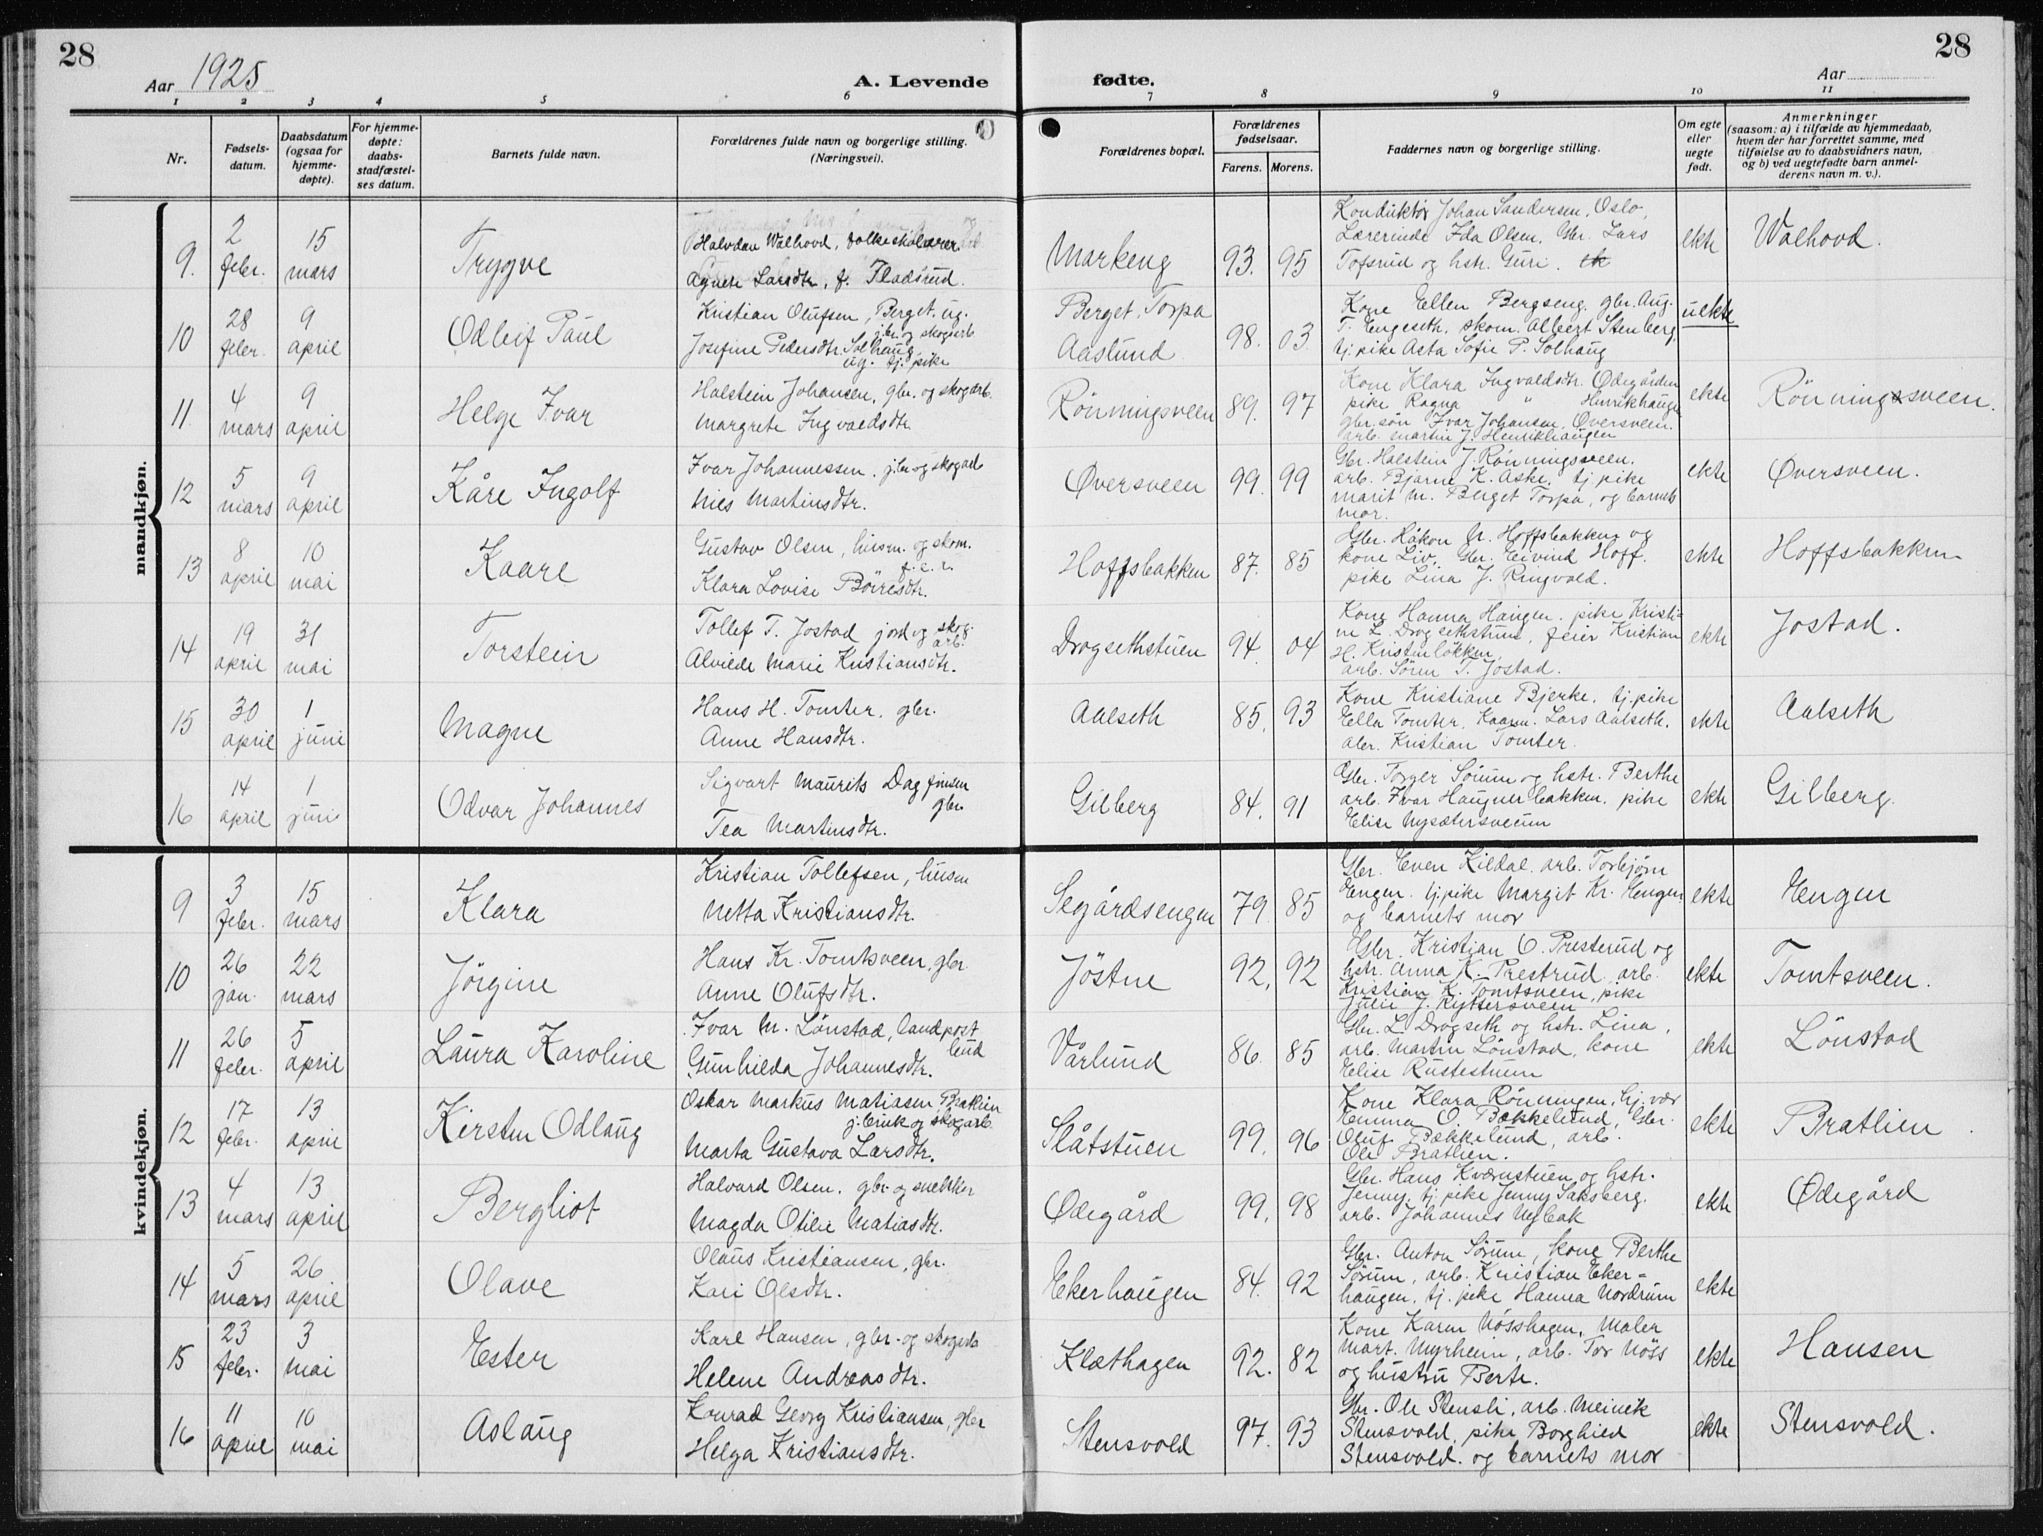 28
Aar 1925
A. Levende
fødte.
Aar
28
1 2 3 4 5 6 7 8 9 10 11
Nr.
Fødsels-
datum.
Daabsdatum
(ogsaa for
hjemme-
døpte).
For hjemme-
døpte:
daabs-
stadfæstel-
ses datum.
Barnets fulde navn.
Forældrenes fulde navn og borgerlige stilling.
(Næringsvei).
Forældrenes bopæl.
Forældrenes
fødselsaar.
Farens. Morens.
Faddernes navn og borgerlige stilling.
Om egte
eller
uegte
født.
Anmerkninger
(saasom: a) i tilfælde av hjemmedaab,
hvem der har forrettet samme, med
tilføielse av to daabsvidners navn,
og b) ved uegtefødte barn anmel-
derens navn m. v.).
mandkjøn.
9. 2 febr. 15 mars Trygve
Halvdan Walhovd, folkeskolelærer
Agnete Larsdtr. f. Fladsrud.
Markeng 93. 95
Konduktør Johan Sandersen, Oslo,
Lærerinde Ida Olsen, Gbr. Lars
Tofsrud og hstr. Guri.
ekte Walhovd.
10 28 febr. 9 april Odleif Paul
Kristian Olufsen, Berget, ug.
jbr. og skogarb.
Josefine Pedersdtr. Solhaug
ug. tj. pike
Berget, Torpa
Aaslund 98. 03
Kone Ellen Bergseng, gbr. Aug.
T. Engeseth, skom. Albert Stenberg,
tj. pike Asta Sofie P. Solhaug
uekte
11 4 mars 9 april Helge Ivar
Halstein Johansen, gbr. og skogarb.
Margrete Ingvaldsdtr.
Rönningsveen 89. 97
Kone Klara Ingvaldsdtr. Ødegården
pike Ragna " Henrikhaugen
gbr. søn Ivar Johansen, Øversveen.
arb. Martin J. Henrikhaugen
ekte Rönningsveen.
12 5 mars 9 april Kåre Ingolf
Ivar Johannessen, jbr og skogarb
Mies Martinsdtr.
Øversveen 99. 99
Gbr. Halstein J. Rönningsveen.
arb. Bjarne K. Aske, tj. pike
Marit M. Berget Torpa, og barnets
mor.
ekte Øversveen.
13 8 april 10 mai Kaare
Gustav Olsen, husm. og skom.
Klara Lovise Böiresdtr.
Hoffsbakken 87. 85
Gbr. Håkon M. Hoffsbakken og
kone Liv, Gbr. Eivind Hoff.
pike Lina J. Ringvold.
ekte Hoffsbakken
14 19 april 31 mai Torstein
Tollef T. Jostad jord og skog.
arb.
Alvilde Marie Kristiansdtr.
Drogsethstuen 94. 04
Kone Hanna Haugen, pike Kristi-
ne L. Drogsethstuen, feier Kristian
H. Kristenløkken
arb. Søren T. Jostad.
ekte Jostad.
15 30 april 1 juni Magne
Hans H. Tomter, gbr.
Anne Hansdtr.
Aalseth 85. 93
Kone Kristiane Bjerke, tj. pike
Ella Tomter, Kaarm. Lars Aalseth.
Kristian Tomter.
ekte Aalseth
16 14 april 1 juni Odvar Johannes
Sigvart Maurits Dagfinsen
gbr.
Tea Martinsdtr.
Gilberg 84. 91
Gbr. Torger Sörum og hstr. Berthe
arb. Ivar Haugnerbakken, pike
Elise Nysætersveen
ekte Gilberg.
kvindekjøn.
9 3 febr. 15 mars Klara
Kristian Tollefsen, husm
Netta Kristiansdtr.
Segårdsengen 79. 85
Gbr. Even Kildal, arb. Torbjørn
Engen, tj. pike Margit Kr. Engen
og barnets mor
ekte Engen
10 26 jan. 22 mars Jörgine
Hans Kr. Tomtsveen, gbr
Anne Olufsdtr.
Jöstne 92. 92
Gbr. Kristian O. Presterud og
hstr. Anna K. Prestrud, arb.
Kristian K. Tomtsveen, pike
Julie J. Rytsersveen
ekte Tomtsveen.
11 26 febr. 5 april Laura Karoline
Ivar M. Lönstad, landpost
bud
Gunhilda Johannesdtr.
Vårlund 86. 85
Gbr. L. Drogseth og hstr. Lina,
arb. Martin Lönstad, kone
Elise Rustestuen
ekte Lönstad
12 17 febr. 13 april Kirsten Odlaug
Oskar Markus Matiasen Bratlien
j. bruk og skogarb.
Marta Gustava Larsdtr.
Slåtstuen 99. 96
Kone Klara Rönningen, hj. vær
Emma O. Bækkelund, Gbr.
Oluf Bækkelund, arb.
Ole Bratlien.
ekte Bratlien
13 4 mars 13 april Bergliot
Halvard Olsen. gbr. og snekker
Magda Otilie Matiasdtr.
Ødegård 99. 98
Gbr. Hans Kværnstuen og hstr.
Jenny, tj. pike Jenny Saksberg.
arb. Johannes Nybak
ekte Ødegård
14 5 mars 26 april Olave
Olaus Kristiansen, gbr.
Kari Olsdtr.
Ekerhaugen 84. 92
Gbr. Anton Sörum, kone Berthe
Sörum, arb. Kristian Eker-
haugen, tj. pike Hanna Nordrum
ekte
15 23 febr. 3 mai Ester
Karl Hansen, gbr. og skogarb
Helene Andreasdtr.
Klæthagen 92. 82
Kone Karen Nösshagen, Maler
Mart. Myrheim, arb. Tor Nöss
og hustru Berte.
ekte Hansen
16 11 april 10 mai Aslaug
Konrad Georg Kristiansen, gbr
Helga Kristiansdtr.
Stensvold 97. 93
Gbr. Ole Stensli, arb. Meinik
Stensvold, pike Borghild
Stensvold. og barnets mor
ekte Stensvold.